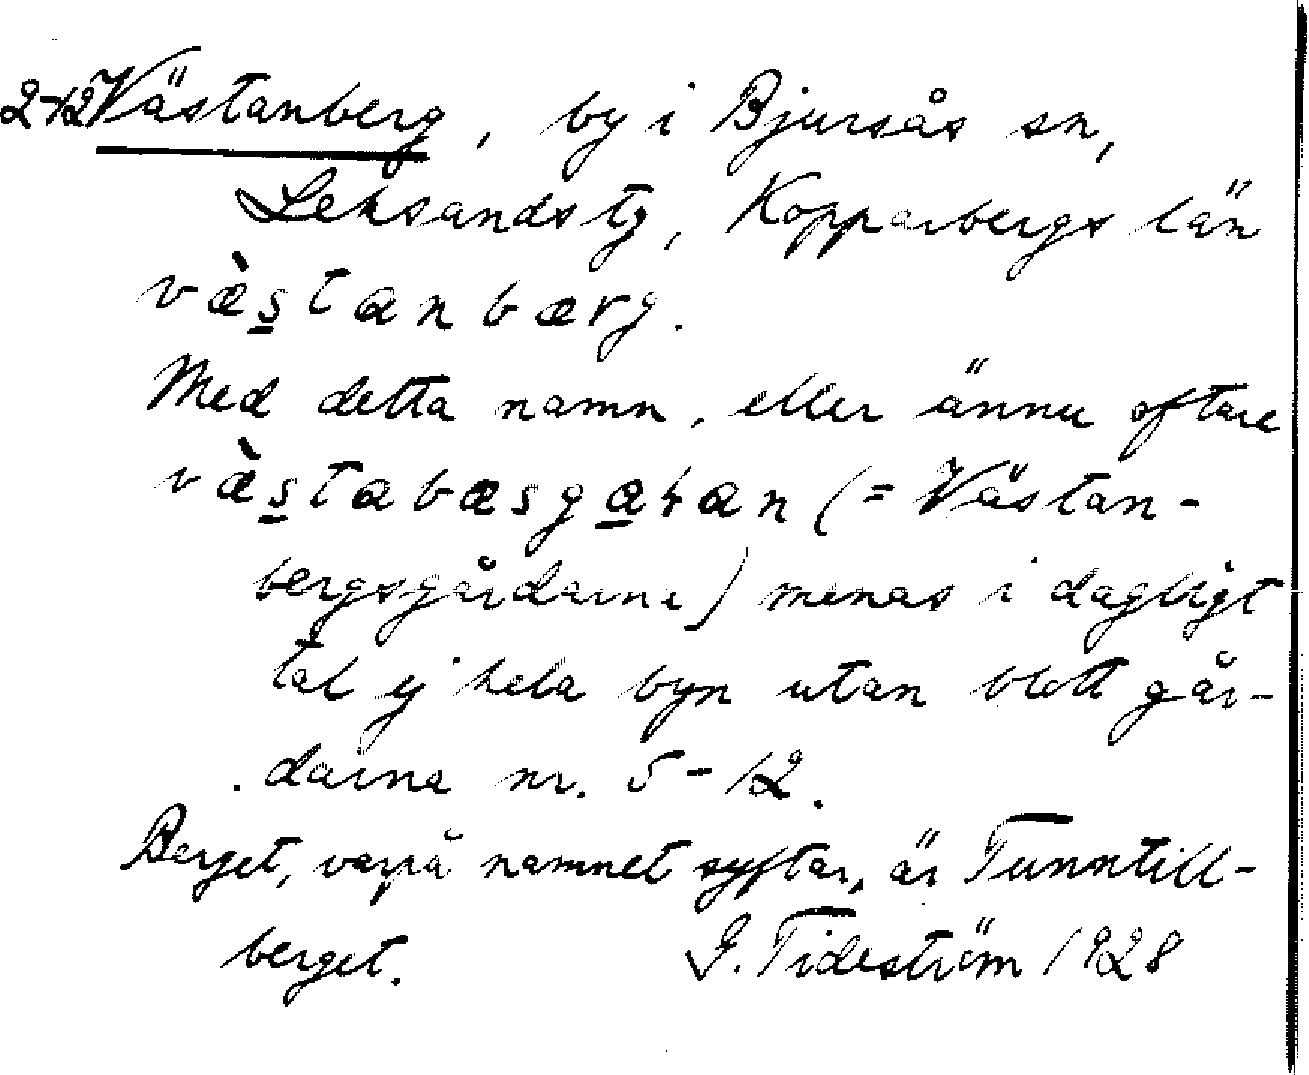 2-12 Västanberg, by i Bjursås sn,
Leksands tg, Kopparbergs län
væ̀s̲tanbærg.
Med detta namn, eller ännu oftare
væ̀s̲tabæsga̲ɬan (= Västan-
bergsgårdarne) menas i dagligt
tal ej hela byn utan blott går-
darna nr. 5-12.
Berget, varpå namnet syftar, är Tunntill-
berget. G. Tideström 1928